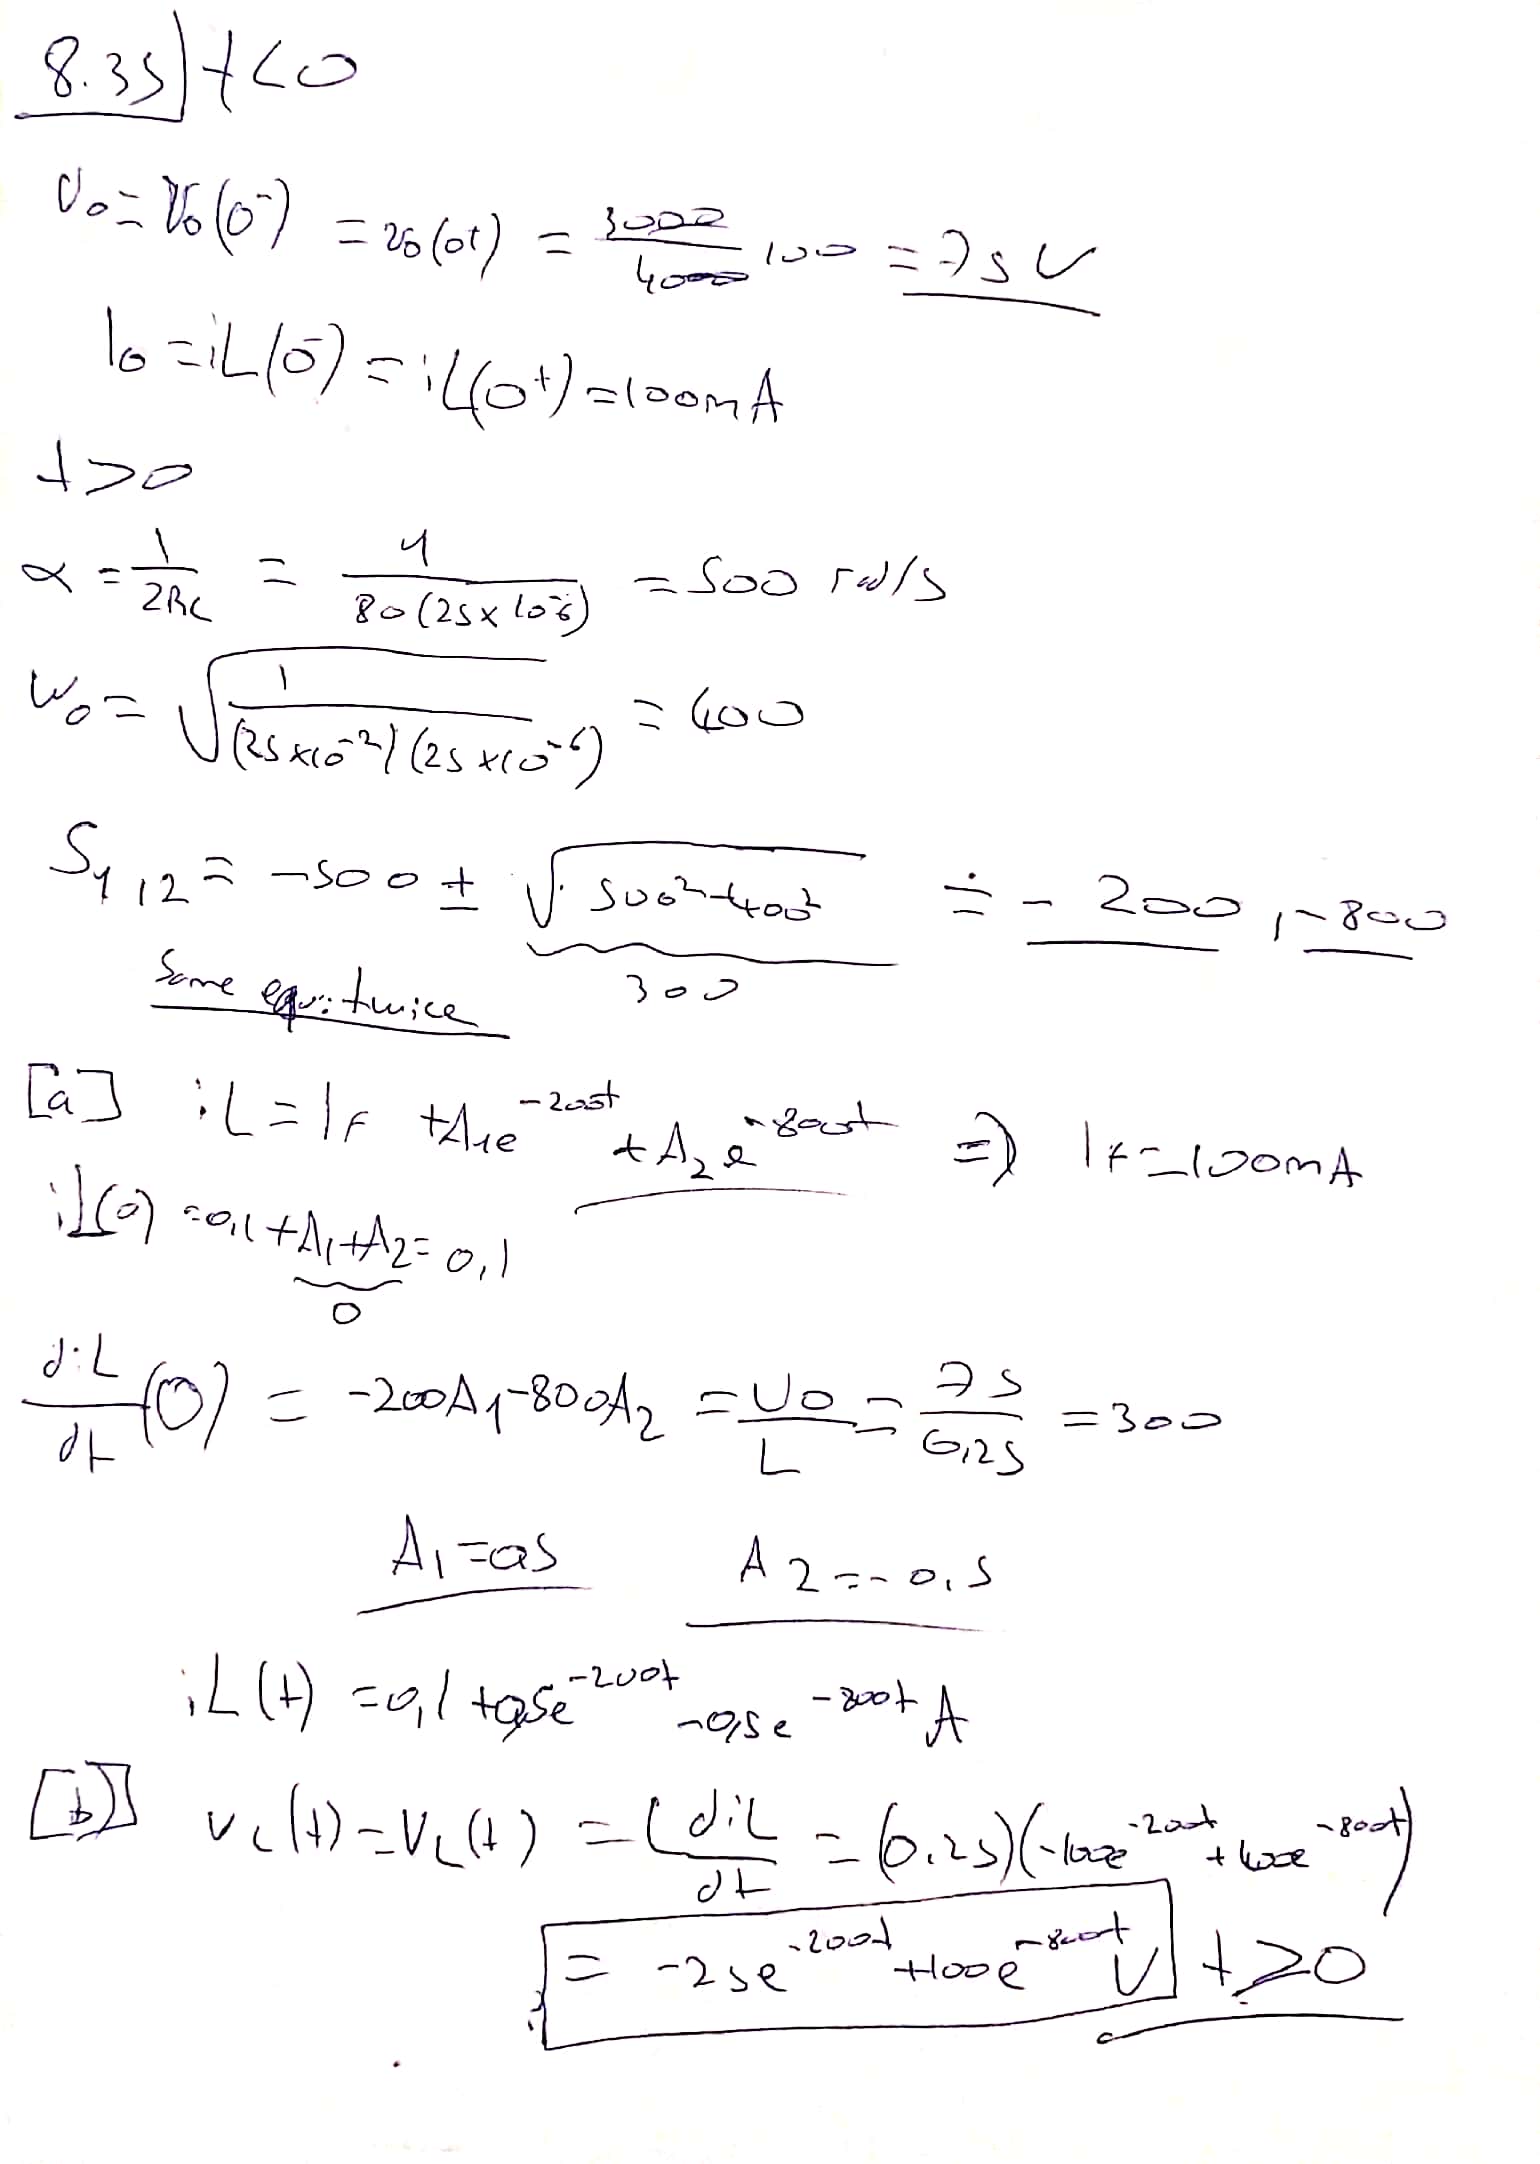 8.35) t<0
V₀ = V₀(0⁻) = V₀(0⁺) = 3000/4000 100 = 75 V
I₀ = iL(0⁻) = iL(0⁺) = 100mA
t>0
α = 1/2RC = 1/80(25×10⁻⁶) = 500 rad/s
W₀ = √(1/(25×10⁻²)(25×10⁻⁶)) = 400
S1,2 = -500 ± √(500²-400²) = -200, -800
300
Same equ: twice
[a] iL = IF + A₁e^-200t + A₂e^-800t ⇒ IF = 100mA
iL(0) = 0,1 + A₁ + A₂ = 0,1
0
diL/dt (0) = -200A₁ - 800A₂ = V0/L = 75/0,25 = 300
A₁ = 0,5 A2 = -0,5
iL(t) = 0,1 + 0,5e^-200t - 0,5e^-800t A
[b] vc(t) = VL(t) = L diL/dt = (0.25)(-100e^-200t + 400e^-800t)
= -25e^-200t + 100e^-800t V t≥0